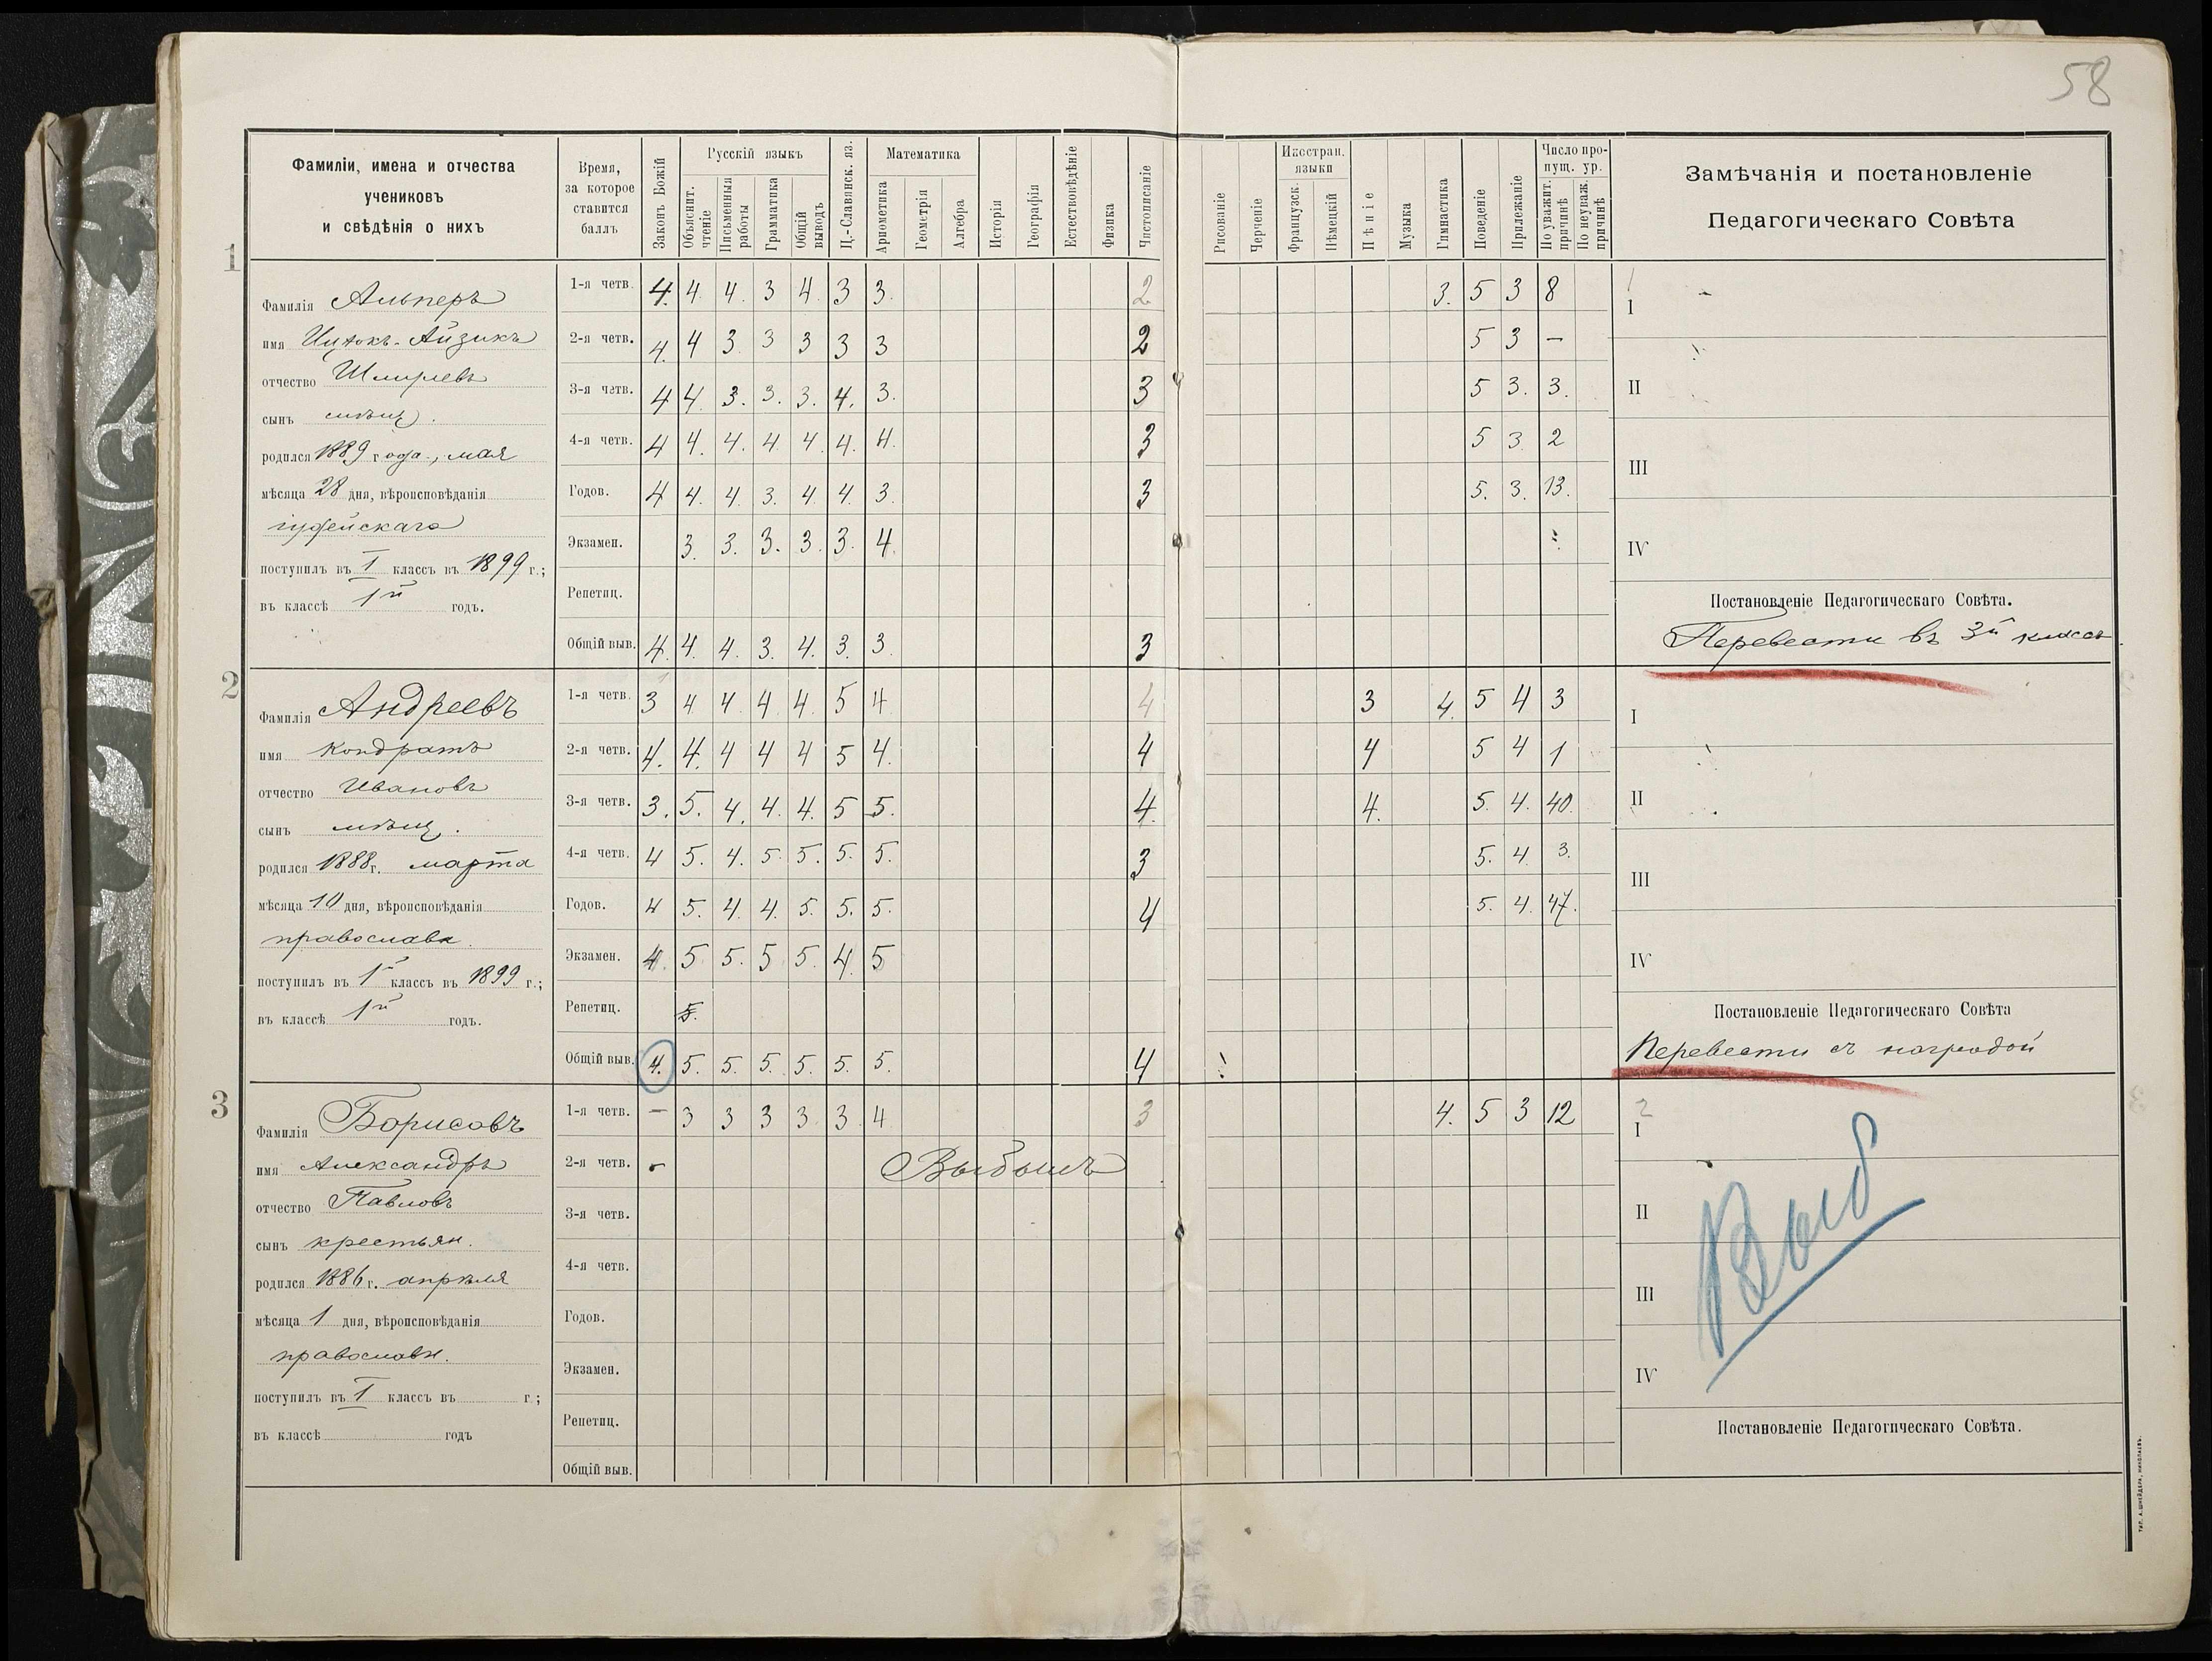 58
Фамиліи, имена и отчества
учениковъ
и свѣдѣнія о нихъ
Время,
за которое
ставится
баллъ
Законъ Божій
Русскій языкъ
Объяснит. чтеніе
Письменныя работы
Грамматика
Общій выводъ
Ц.-Славянск. яз.
Математика
Ариѳметика
Геометрія
Алгебра
Исторія
Географія
Естествовѣдѣніе
Физика
Чистописаніе
Рисованіе
Черченіе
Иностран. языки
Французск.
Нѣмецкій
Пѣніе
Музыка
Гимнастика
Поведеніе
Прилежаніе
Число пропущ. ур.
По уважит. причинѣ
По неуваж. причинѣ
Замѣчанія и постановленіе
Педагогическаго Совѣта
1
Фамилія Альперъ
имя Ицхокъ-Айзикъ
отчество Шмулевъ
сынъ мѣщ.
родился 1889 года, мая
мѣсяца 28 дня, вѣроисповѣданія
іудейскаго
поступилъ въ I классъ въ 1899 г.;
въ классѣ 1й годъ.
1-я четв. 4. 4. 4. 3 4. 3 3. 2 3. 5 3 8
2-я четв. 4. 4 3 3 3 3 3 2 5 3 —
3-я четв. 4 4. 3. 3. 3. 4. 3. 3 5 3. 3.
4-я четв. 4 4. 4. 4 4. 4. 4. 3 5 3 2
Годов. 4 4. 4 3. 4. 4. 3. 3 5. 3. 13.
Экзамен. 3. 3. 3. 3. 3. 4.
Репетиц.
Общій выв. 4. 4. 4. 3. 4. 3. 3. 3
I
II
III
IV
Постановленіе Педагогическаго Совѣта.
Перевести въ 3й классъ
2
Фамилія Андреевъ
имя Кондратъ
отчество Ивановъ
сынъ мѣщ.
родился 1888 г. марта
мѣсяца 10 дня, вѣроисповѣданія
православн.
поступилъ въ 1й классъ въ 1899 г.;
въ классѣ 1й годъ.
1-я четв. 3 4 4. 4 4. 5 4 4 3 4. 5 4 3
2-я четв. 4. 4. 4 4 4 5 4. 4 4 5 4 1
3-я четв. 3. 5. 4. 4. 4. 5 5. 4. 4. 5. 4. 40.
4-я четв. 4 5. 4. 5. 5. 5. 5. 3 5. 4. 3.
Годов. 4 5. 4. 4. 5. 5. 5. 4 5. 4. 47.
Экзамен. 4. 5 5. 5 5. 4. 5
Репетиц. 5.
Общій выв. 4. 5. 5. 5. 5. 5. 5. 4
I
II
III
IV
Постановленіе Педагогическаго Совѣта
Перевести съ наградой
3
Фамилія Борисовъ
имя Александръ
отчество Павловъ
сынъ крестьян.
родился 1886 г. апрѣля
мѣсяца 1 дня, вѣроисповѣданія
православн.
поступилъ въ I классъ въ г.;
въ классѣ годъ
1-я четв. — 3 3 3 3 3. 4 3 4. 5 3 12
2-я четв. Выбылъ
3-я четв.
4-я четв.
Годов.
Экзамен.
Репетиц.
Общій выв.
2
I
II
III
IV
Выб
Постановленіе Педагогическаго Совѣта.
ТИП. А. ШНЕЙДЕРА, НИКОЛАЕВЪ.